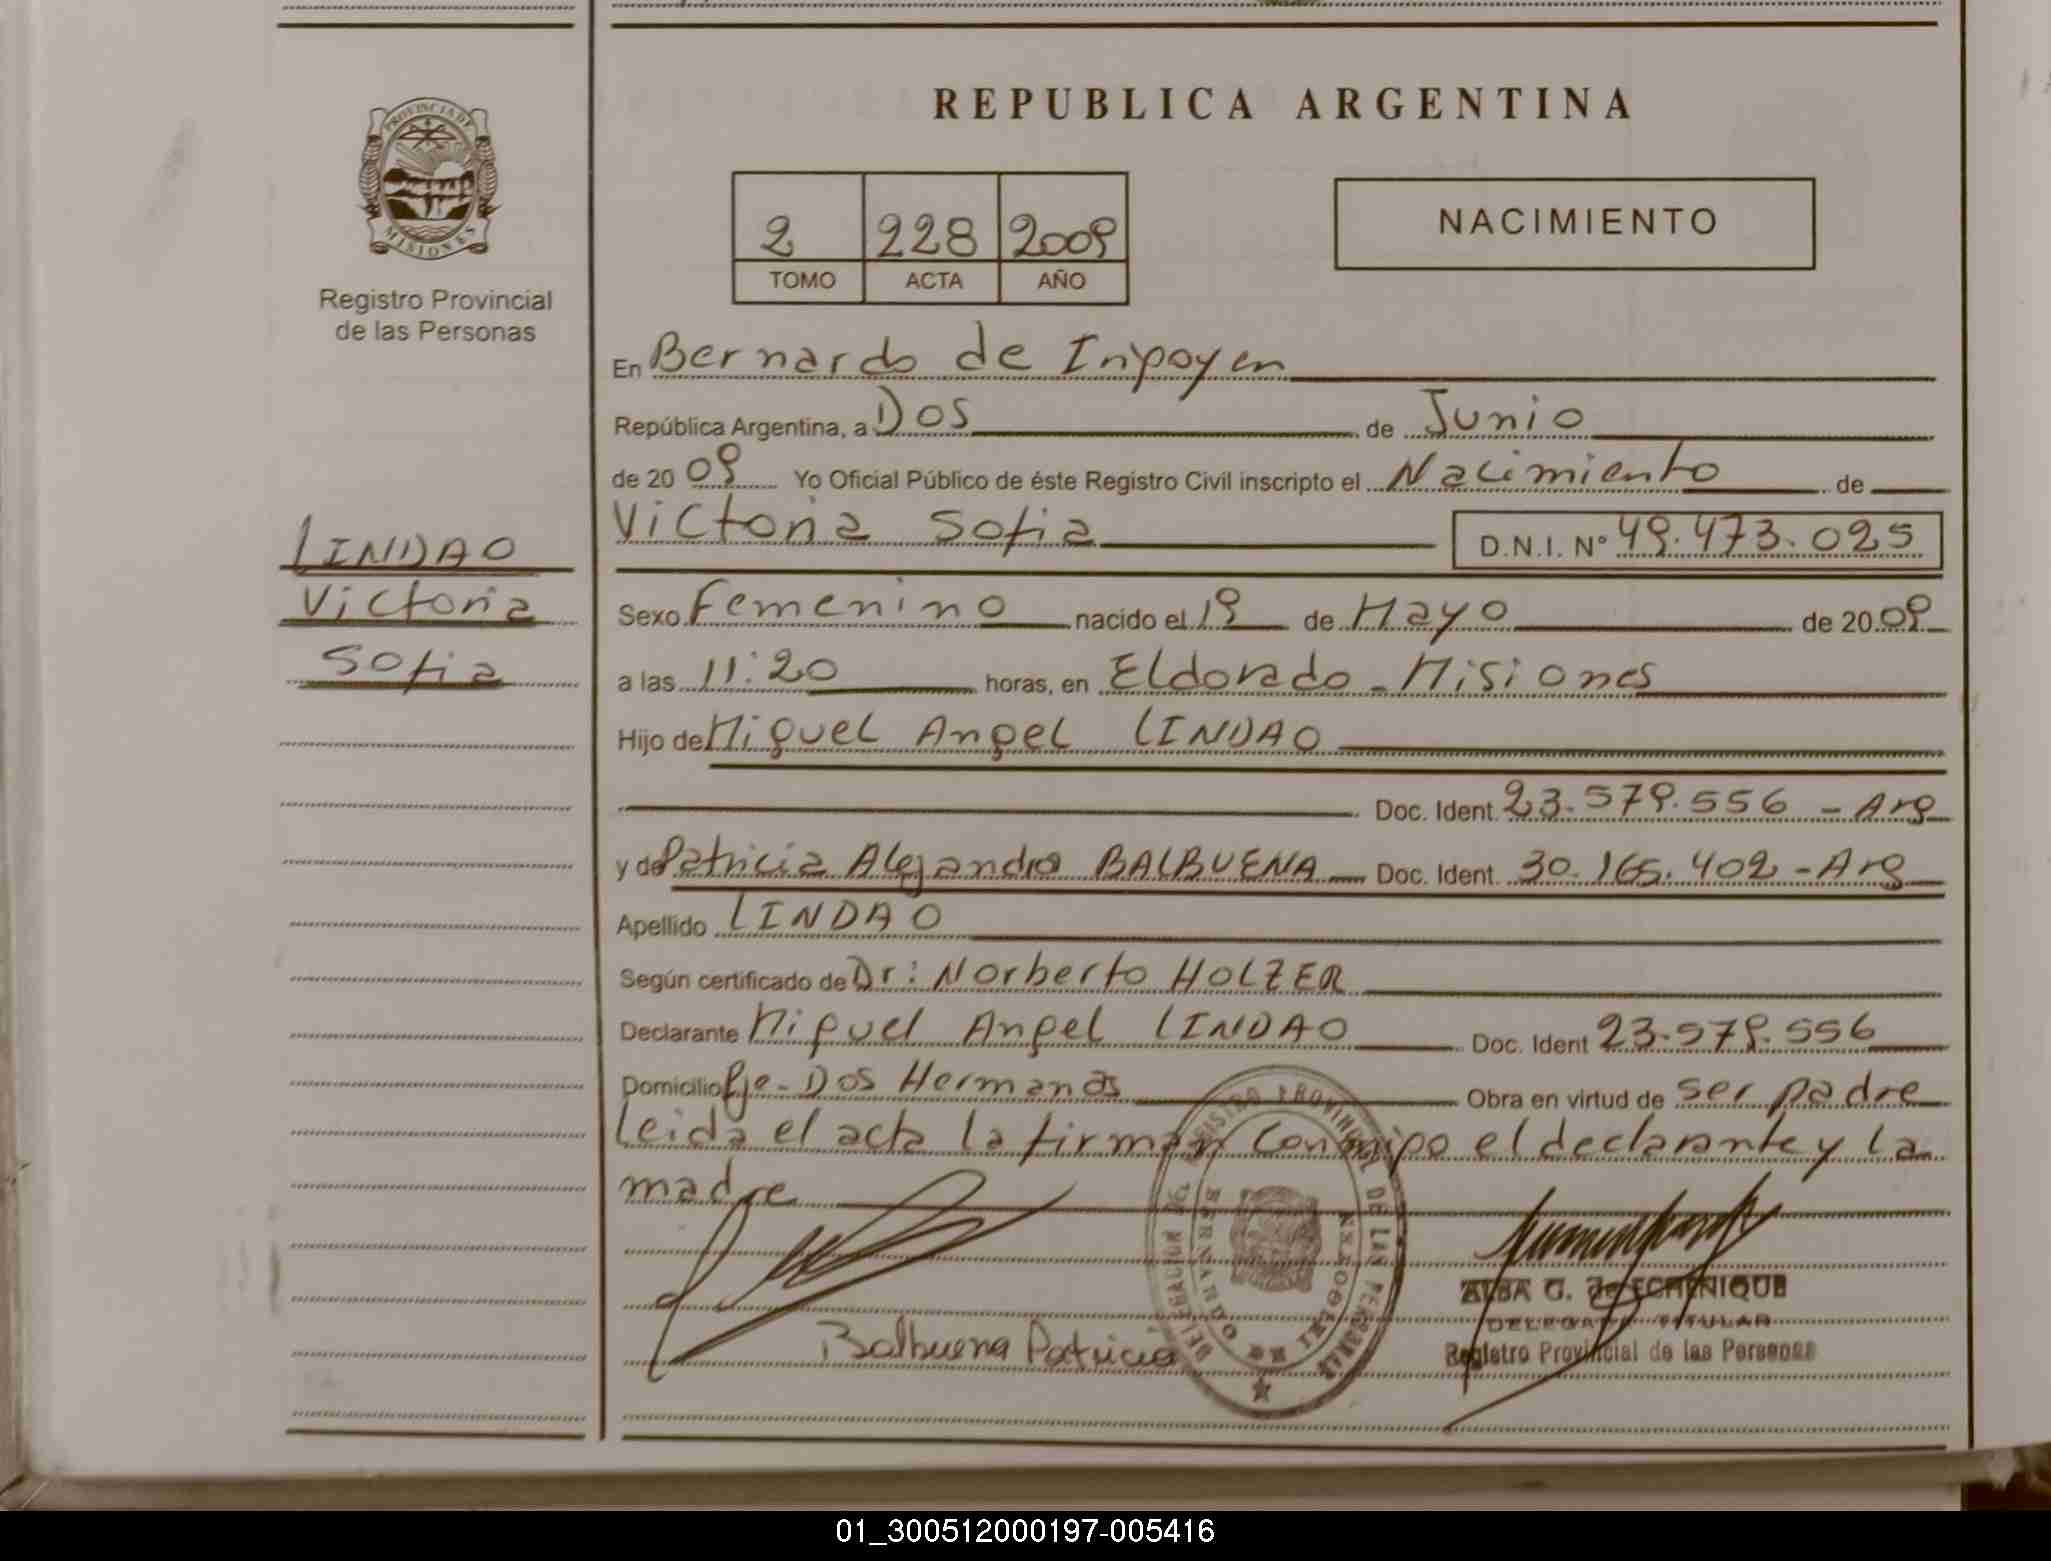 REPUBLICA ARGENTINA
PROVINCIA DE
MISIONES
Registro Provincial
de las Personas
2 228 2009
TOMO ACTA AÑO
NACIMIENTO
En Bernardo de Irigoyen
República Argentina, a Dos de Junio
de 2009 Yo Oficial Público de éste Registro Civil inscripto el Nacimiento de
Victoria Sofia D.N.I. Nº 49.473.025
LINDAO
Victoria
Sofia
Sexo Femenino nacido el 19 de Mayo de 2009
a las 11:20 horas, en Eldorado - Misiones
Hijo de Miguel Angel LINDAO
Doc. Ident. 23.579.556 - Arg
y de Patricia Alejandra BALBUENA Doc. Ident. 30.165.402 - Arg
Apellido LINDAO
Según certificado de Dr: Norberto HOLZER
Declarante Miguel Angel LINDAO Doc. Ident 23.579.556
Domicilio Pje - Dos Hermanas Obra en virtud de ser padre
leida el acta la firman conmigo el declarante y la
madre
Balbuena Patricia
DELEGACION DEL REGISTRO PROVINCIAL DE LAS PERSONAS
BERNARDO DE IRIGOYEN
ALBA G. de ECHENIQUE
DELEGADA TITULAR
Registro Provincial de las Personas
01_300512000197-005416